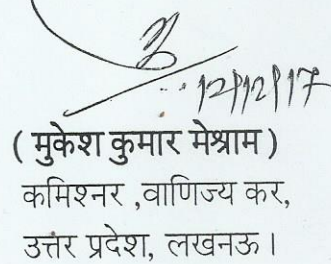 12/12/17
( मुकेश कुमार मेश्राम )
कमिश्नर ,वाणिज्य कर,
उत्तर प्रदेश, लखनऊ।